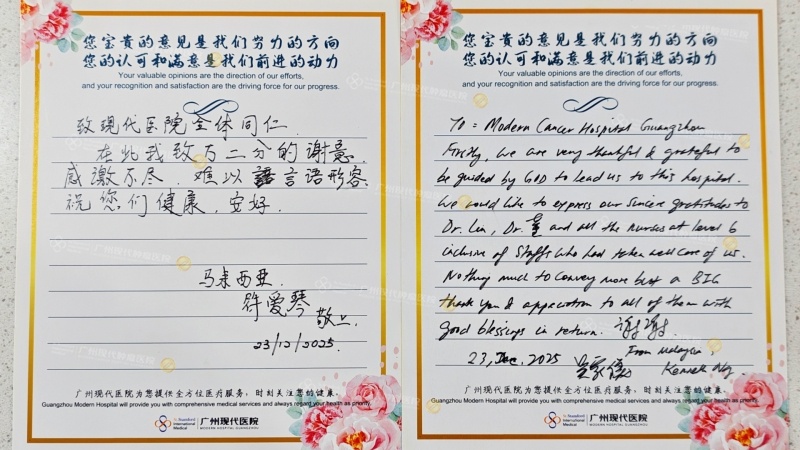 您宝贵的意见是我们努力的方向
您的认可和满意是我们前进的动力
Your valuable opinions are the direction of our efforts,
and your recognition and satisfaction are the driving force for our progress.
致现代医院全体同仁.
在此我致万二分的谢意.
感激不尽，难以言语形容.
祝您们健康，安好.
马来西亚.
符爱琴
敬上.
23/12/2025.
广州现代医院为您提供全方位医疗服务，时刻关注您的健康。
Guangzhou Modern Hospital will provide you with comprehensive medical services and always regard your health as priority.
St. Stamford International Medical
广州现代医院
MODERN HOSPITAL GUANGZHOU
您宝贵的意见是我们努力的方向
您的认可和满意是我们前进的动力
Your valuable opinions are the direction of our efforts,
and your recognition and satisfaction are the driving force for our progress.
To = Modern Cancer Hospital Guangzhou
Firstly, we are very thankful & grateful to
be guided by GOD to lead us to this hospital.
We would like to express our sincere gratitudes to
Dr. Lin, Dr. and all the nurses at level 6
inclusive of Staffs who had taken well care of us.
Nothing much to convey more but a BIG
thank you & appreciation to all of them with
good blessings in return. 谢谢.
From Malaysia,
23, Dec, 2025
Kenneth Ng.
广州现代医院为您提供全方位医疗服务，时刻关注您的健康。
Guangzhou Modern Hospital will provide you with comprehensive medical services and always regard your health as priority.
St. Stamford International Medical
广州现代医院
MODERN HOSPITAL GUANGZHOU